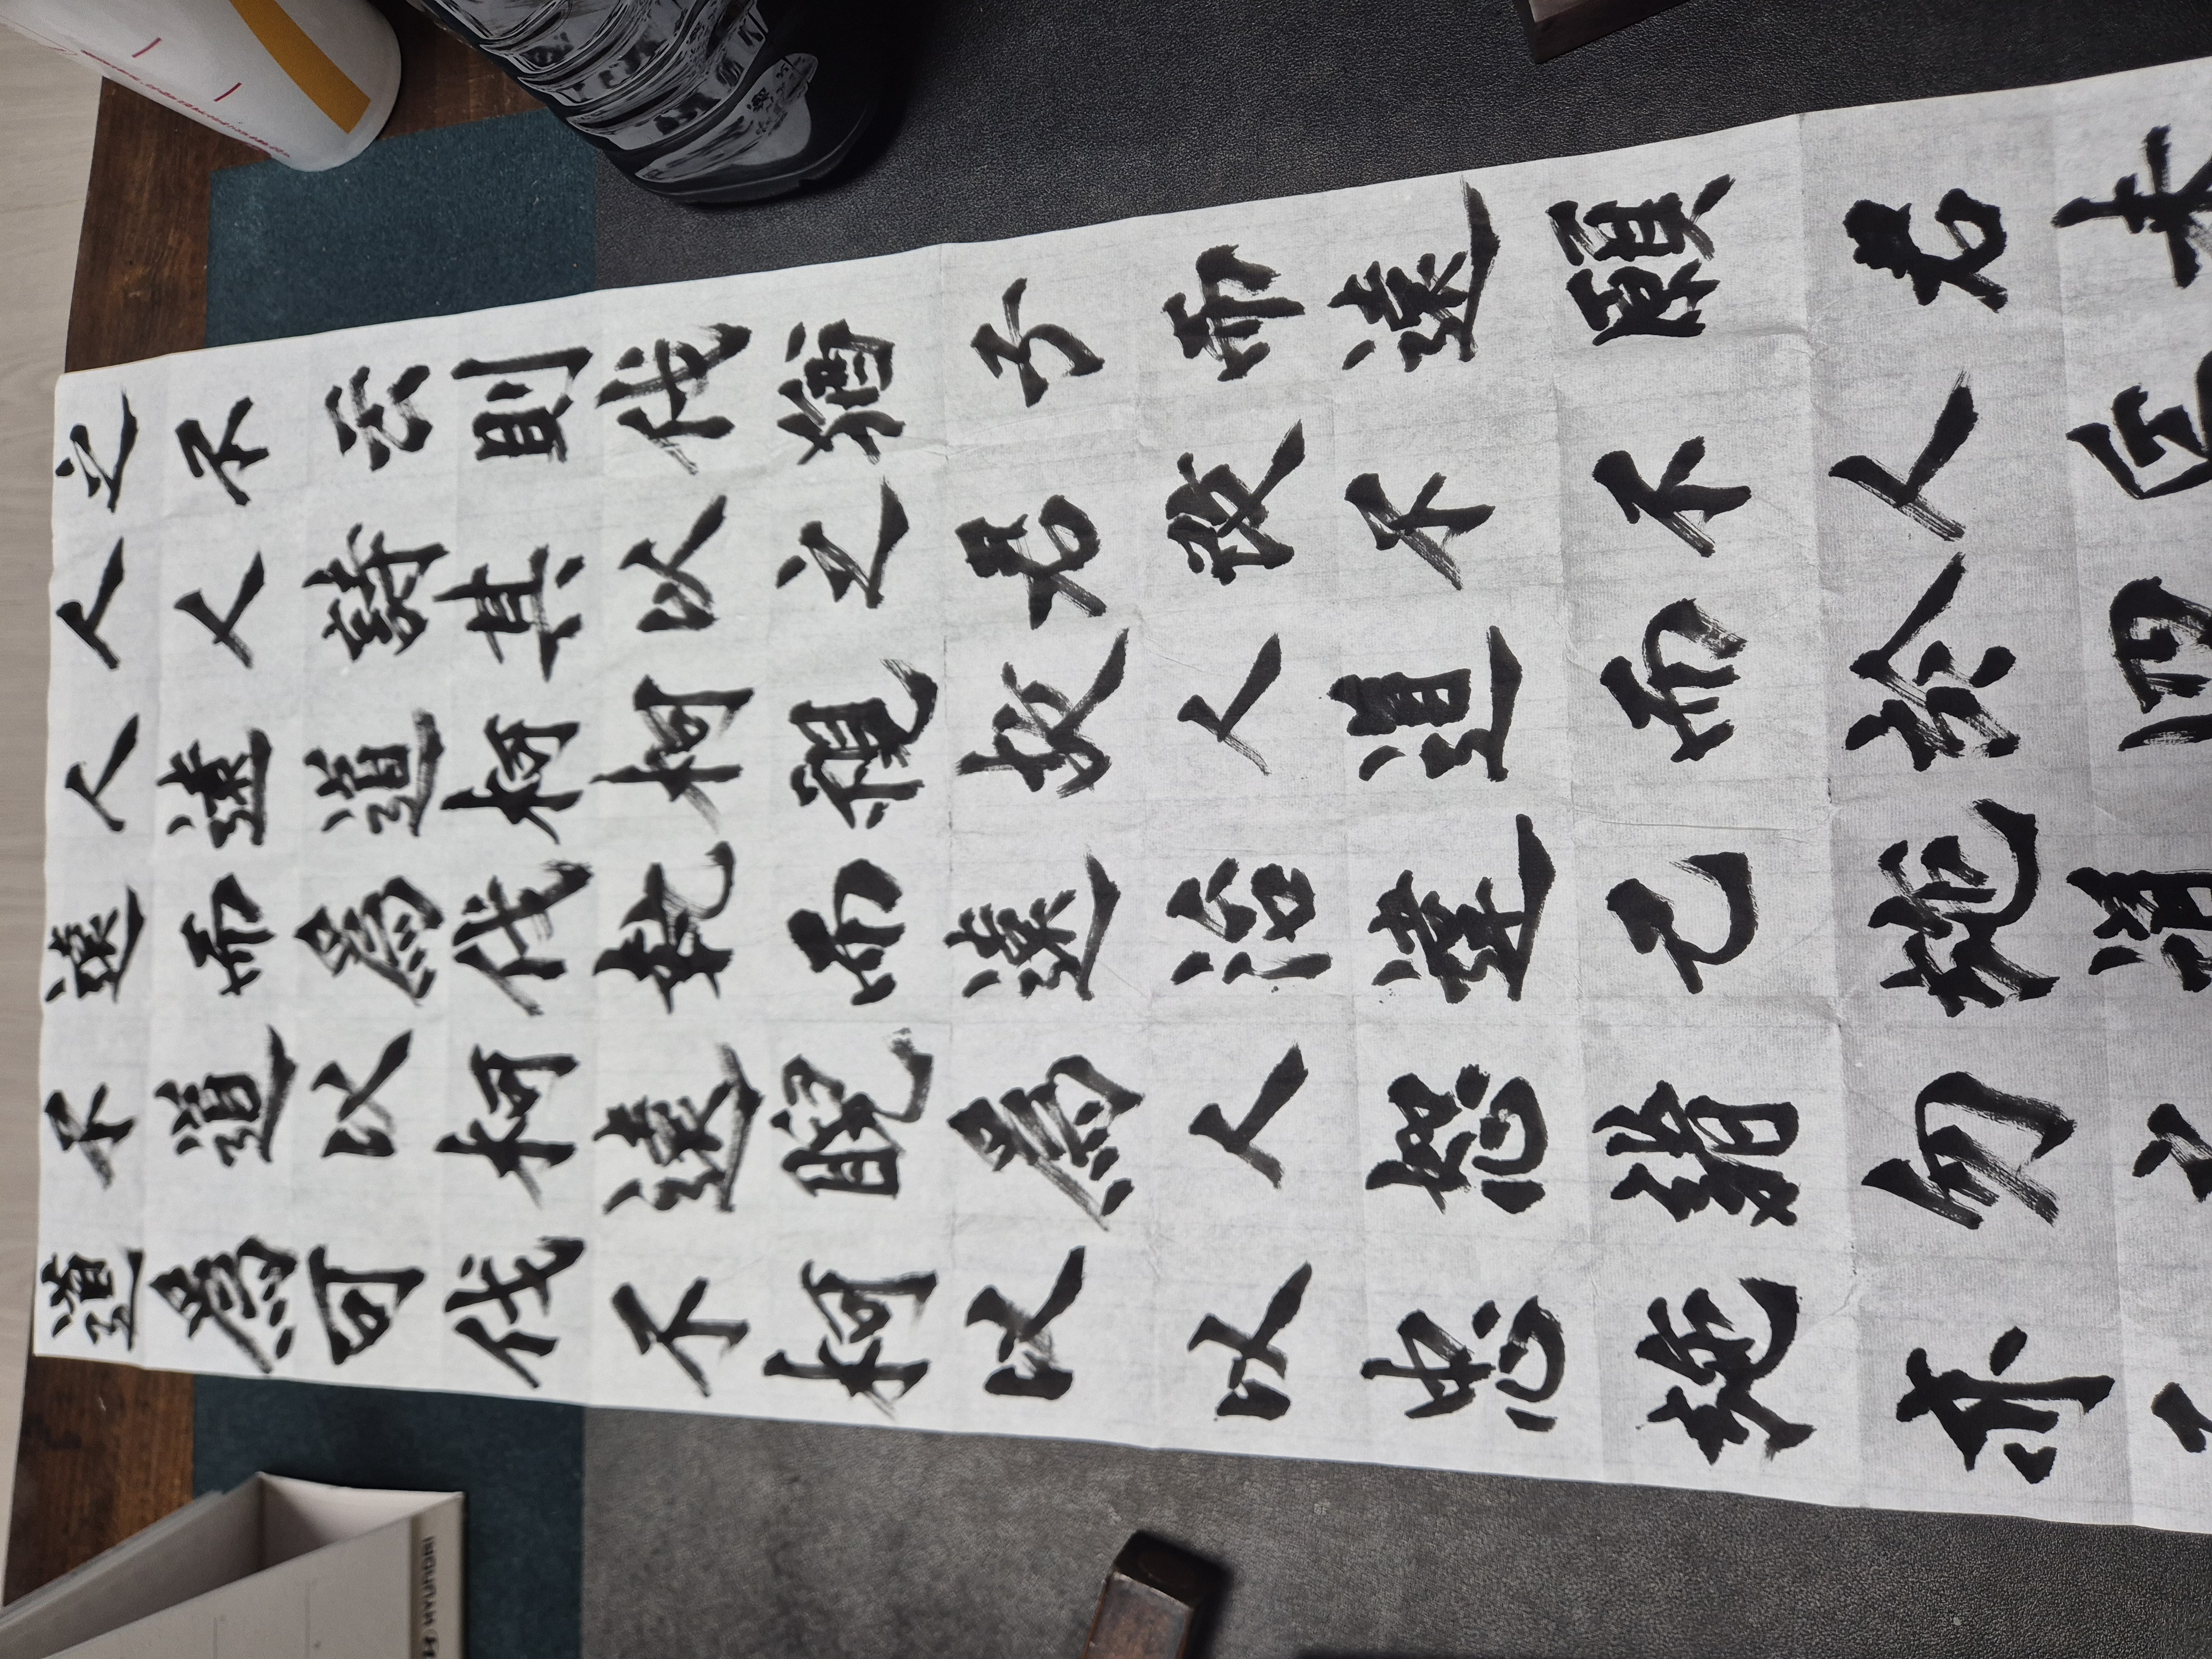 道不遠人人之
爲道而遠人不
可以爲道詩云
伐柯伐柯其則
不遠執柯以伐
柯睨而視之猶
以爲遠故君子
以人治人改而
忠恕違道不遠
施諸己而不願
亦勿施於人君
子之道四丘未
HYUNDAI